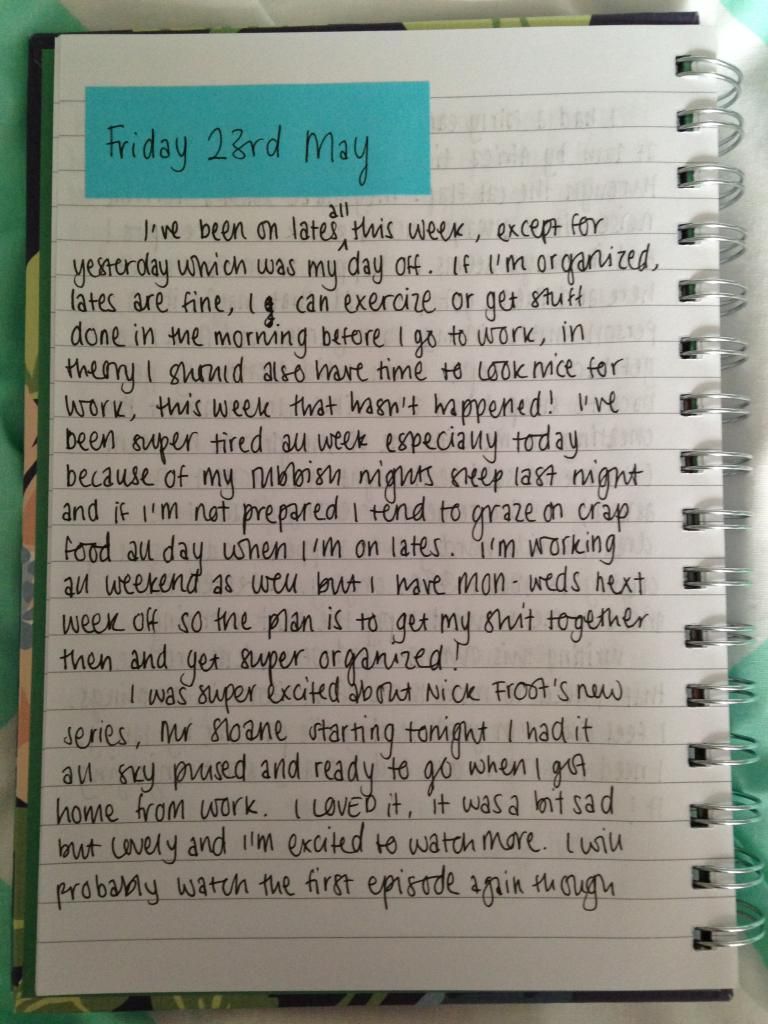 Friday 23rd May
I've been on lates all this week, except for
yesterday which was my day off. If I'm organized,
lates are fine, I can exercize or get stuff
done in the morning before I go to work, in
theory I should also have time to look nice for
work, this week that hasn't happened! I've
been super tired all week especially today
because of my rubbish nights sleep last night
and if I'm not prepared I tend to graze on crap
food all day when I'm on lates. I'm working
all weekend as well but I have mon-weds next
week off so the plan is to get my shit together
then and get super organized!
I was super excited about Nick Frost's new
series, Mr Sloane starting tonight I had it
all sky plused and ready to go when I got
home from work. I LOVED it, it was a bit sad
but lovely and I'm excited to watch more. I will
probably watch the first episode again though